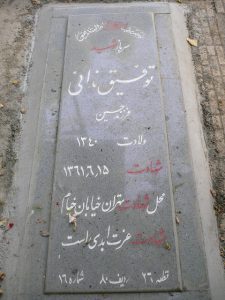 شهید
توفیق
فرزند حسین
ولادت ۱۳۴۰
شهادت ۱۳۶۱٫۶٫۱۵
محل شهادت تهران خیابان خیام
شهادت عزت ابدی است
قطعه ۲۶ ردیف ۸۰ شماره ۱۶